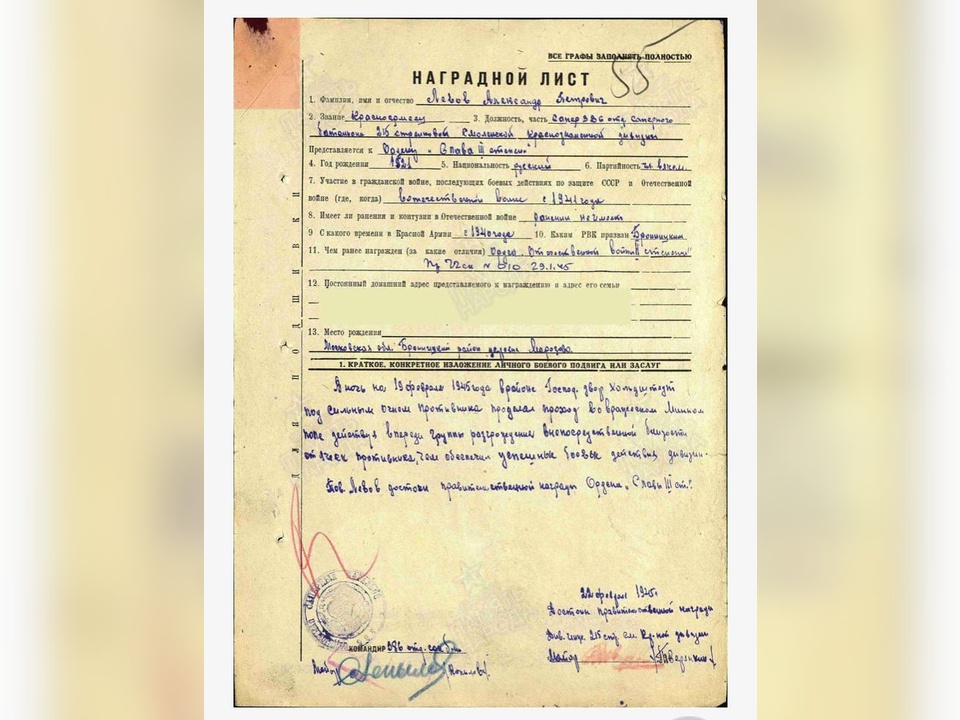 55
ВСЕ ГРАФЫ ЗАПОЛНЯТЬ ПОЛНОСТЬЮ
НАГРАДНОЙ ЛИСТ
1. Фамилия, имя и отчество Левов Александр Петрович
2. Звание Красноармеец 3. Должность, часть Сапер 386 отд. саперного
батальона 215 стрелковой Смоленской Краснознаменной дивизии
Представляется к Ордену "Слава III степени"
4. Год рождения 1921 5. Национальность русский 6. Партийность чл. влксм.
7. Участие в гражданской войне, последующих боевых действиях по защите СССР и Отечественной
войне (где, когда) в отечественной войне с 1941 года
8. Имеет ли ранения и контузии в Отечественной войне ранений не имеет
9 С какого времени в Красной Армии с 1940 года 10. Каким РВК призван Бронницким
11. Чем ранее награжден (за какие отличия) Орден. Отечественной войны степени"
Пр 72 ск № 010 29.1.45
12. Постоянный домашний адрес представляемого к награждению и адрес его семьи
13. Место рождения
Московская обл. Бронницкий район деревня
1. КРАТКОЕ, КОНКРЕТНОЕ ИЗЛОЖЕНИЕ ЛИЧНОГО БОЕВОГО ПОДВИГА ИЛИ ЗАСЛУГ
В ночь на 19 февраля 1945 года в районе Господ. двор
под сильным огнем противника проделал проход во вражеском минном
поле действуя впереди группы разграждения в непосредственной близости
от ячеек противника, чем обеспечил успешные боевые действия дивизии.
Тов. Левов достоин правительственной награды Ордена "Славы III ст."
22 февраля 1945г
Достоин правительственной награды
Див. инж. 215 стр. см. Кр-ной дивизии
КОМАНДИР 386 отд. сап. б-на
Майор
Майор